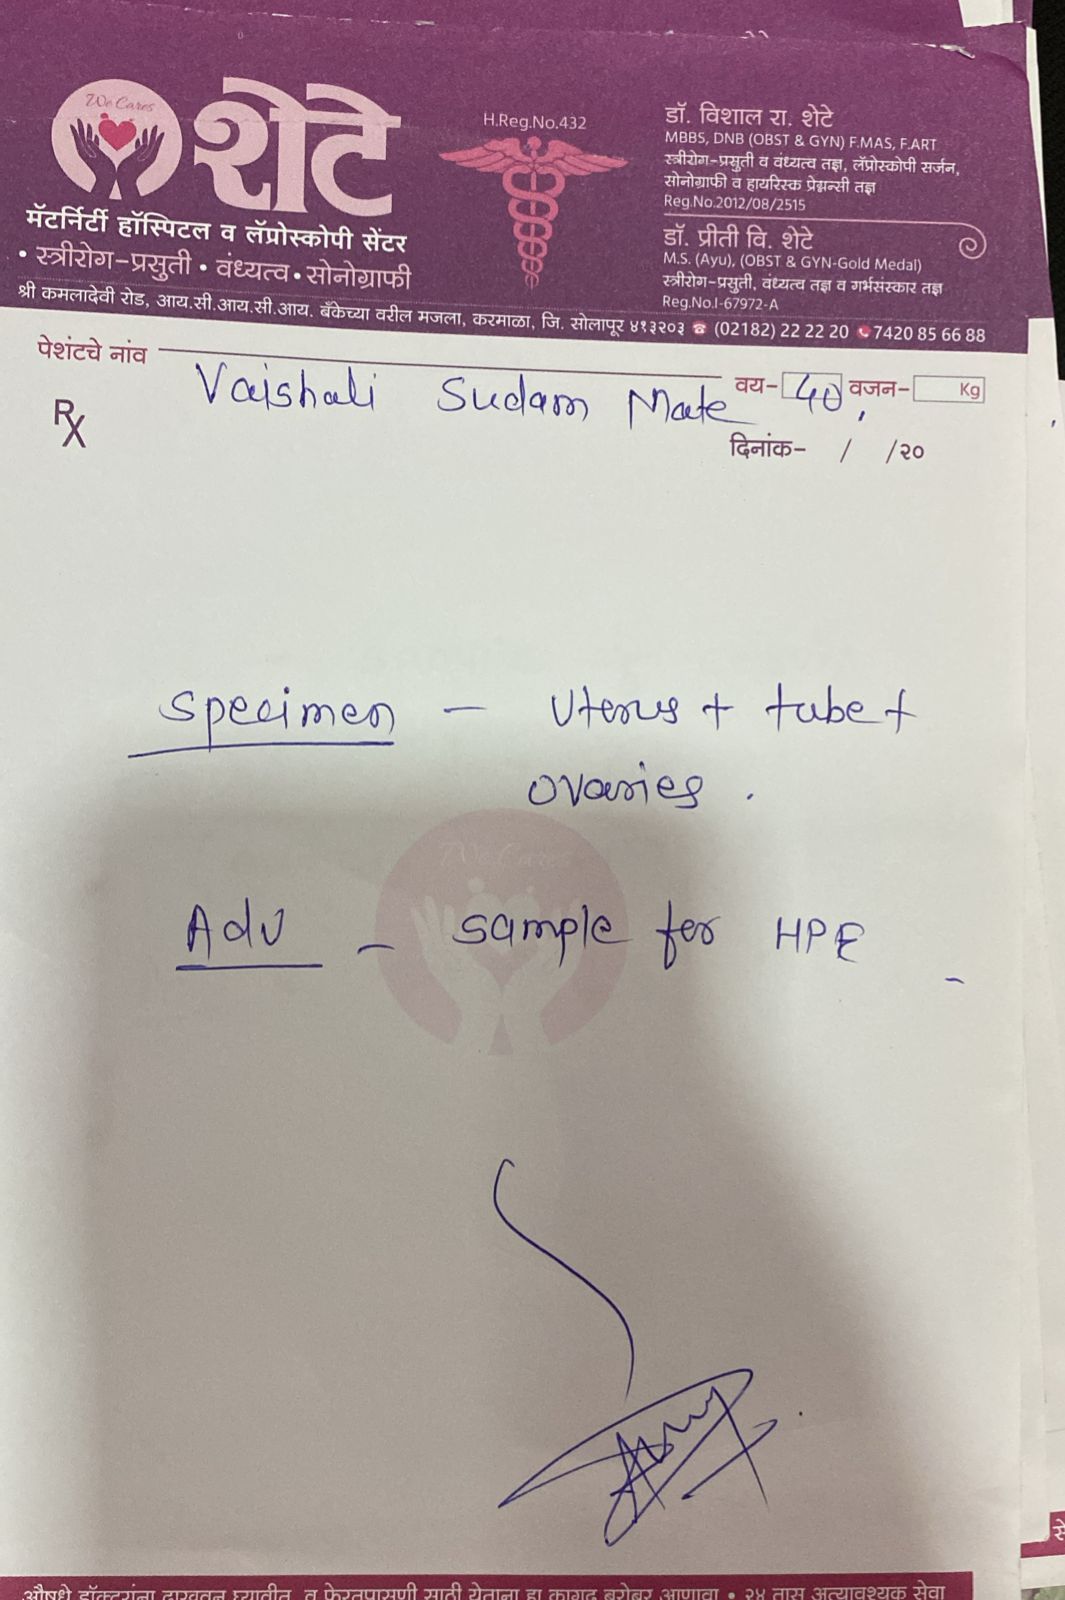 We Cares
शेटे
मॅटर्निटी हॉस्पिटल व लॅप्रोस्कोपी सेंटर
• स्त्रीरोग-प्रसुती • वंध्यत्व • सोनोग्राफी
H.Reg.No.432
डॉ. विशाल रा. शेटे
MBBS, DNB (OBST & GYN) F.MAS, F.ART
स्त्रीरोग-प्रसुती व वंध्यत्व तज्ञ, लॅप्रोस्कोपी सर्जन,
सोनोग्राफी व हायरिस्क प्रेग्नन्सी तज्ञ
Reg.No.2012/08/2515
डॉ. प्रीती वि. शेटे
M.S. (Ayu), (OBST & GYN-Gold Medal)
स्त्रीरोग-प्रसुती, वंध्यत्व तज्ञ व गर्भसंस्कार तज्ञ
Reg.No.I-67972-A
श्री कमलादेवी रोड, आय.सी.आय.सी.आय. बँकेच्या वरील मजला, करमाळा, जि. सोलापूर ४१३२०३ ☎ (02182) 22 22 20 7420 85 66 88
पेशंटचे नांव Vaishali Sudam Mate वय- 40, वजन- Kg
Rx
दिनांक- / /२०
Specimen - Uterus + tube +
ovaries .
We Cares
Adv - sample for HPE -
औषधे डॉक्टरांना दाखवून घ्यावीत व फेरतपासणी साठी येताना हा कागद बरोबर आणावा • २४ तास अत्यावश्यक सेवा
से